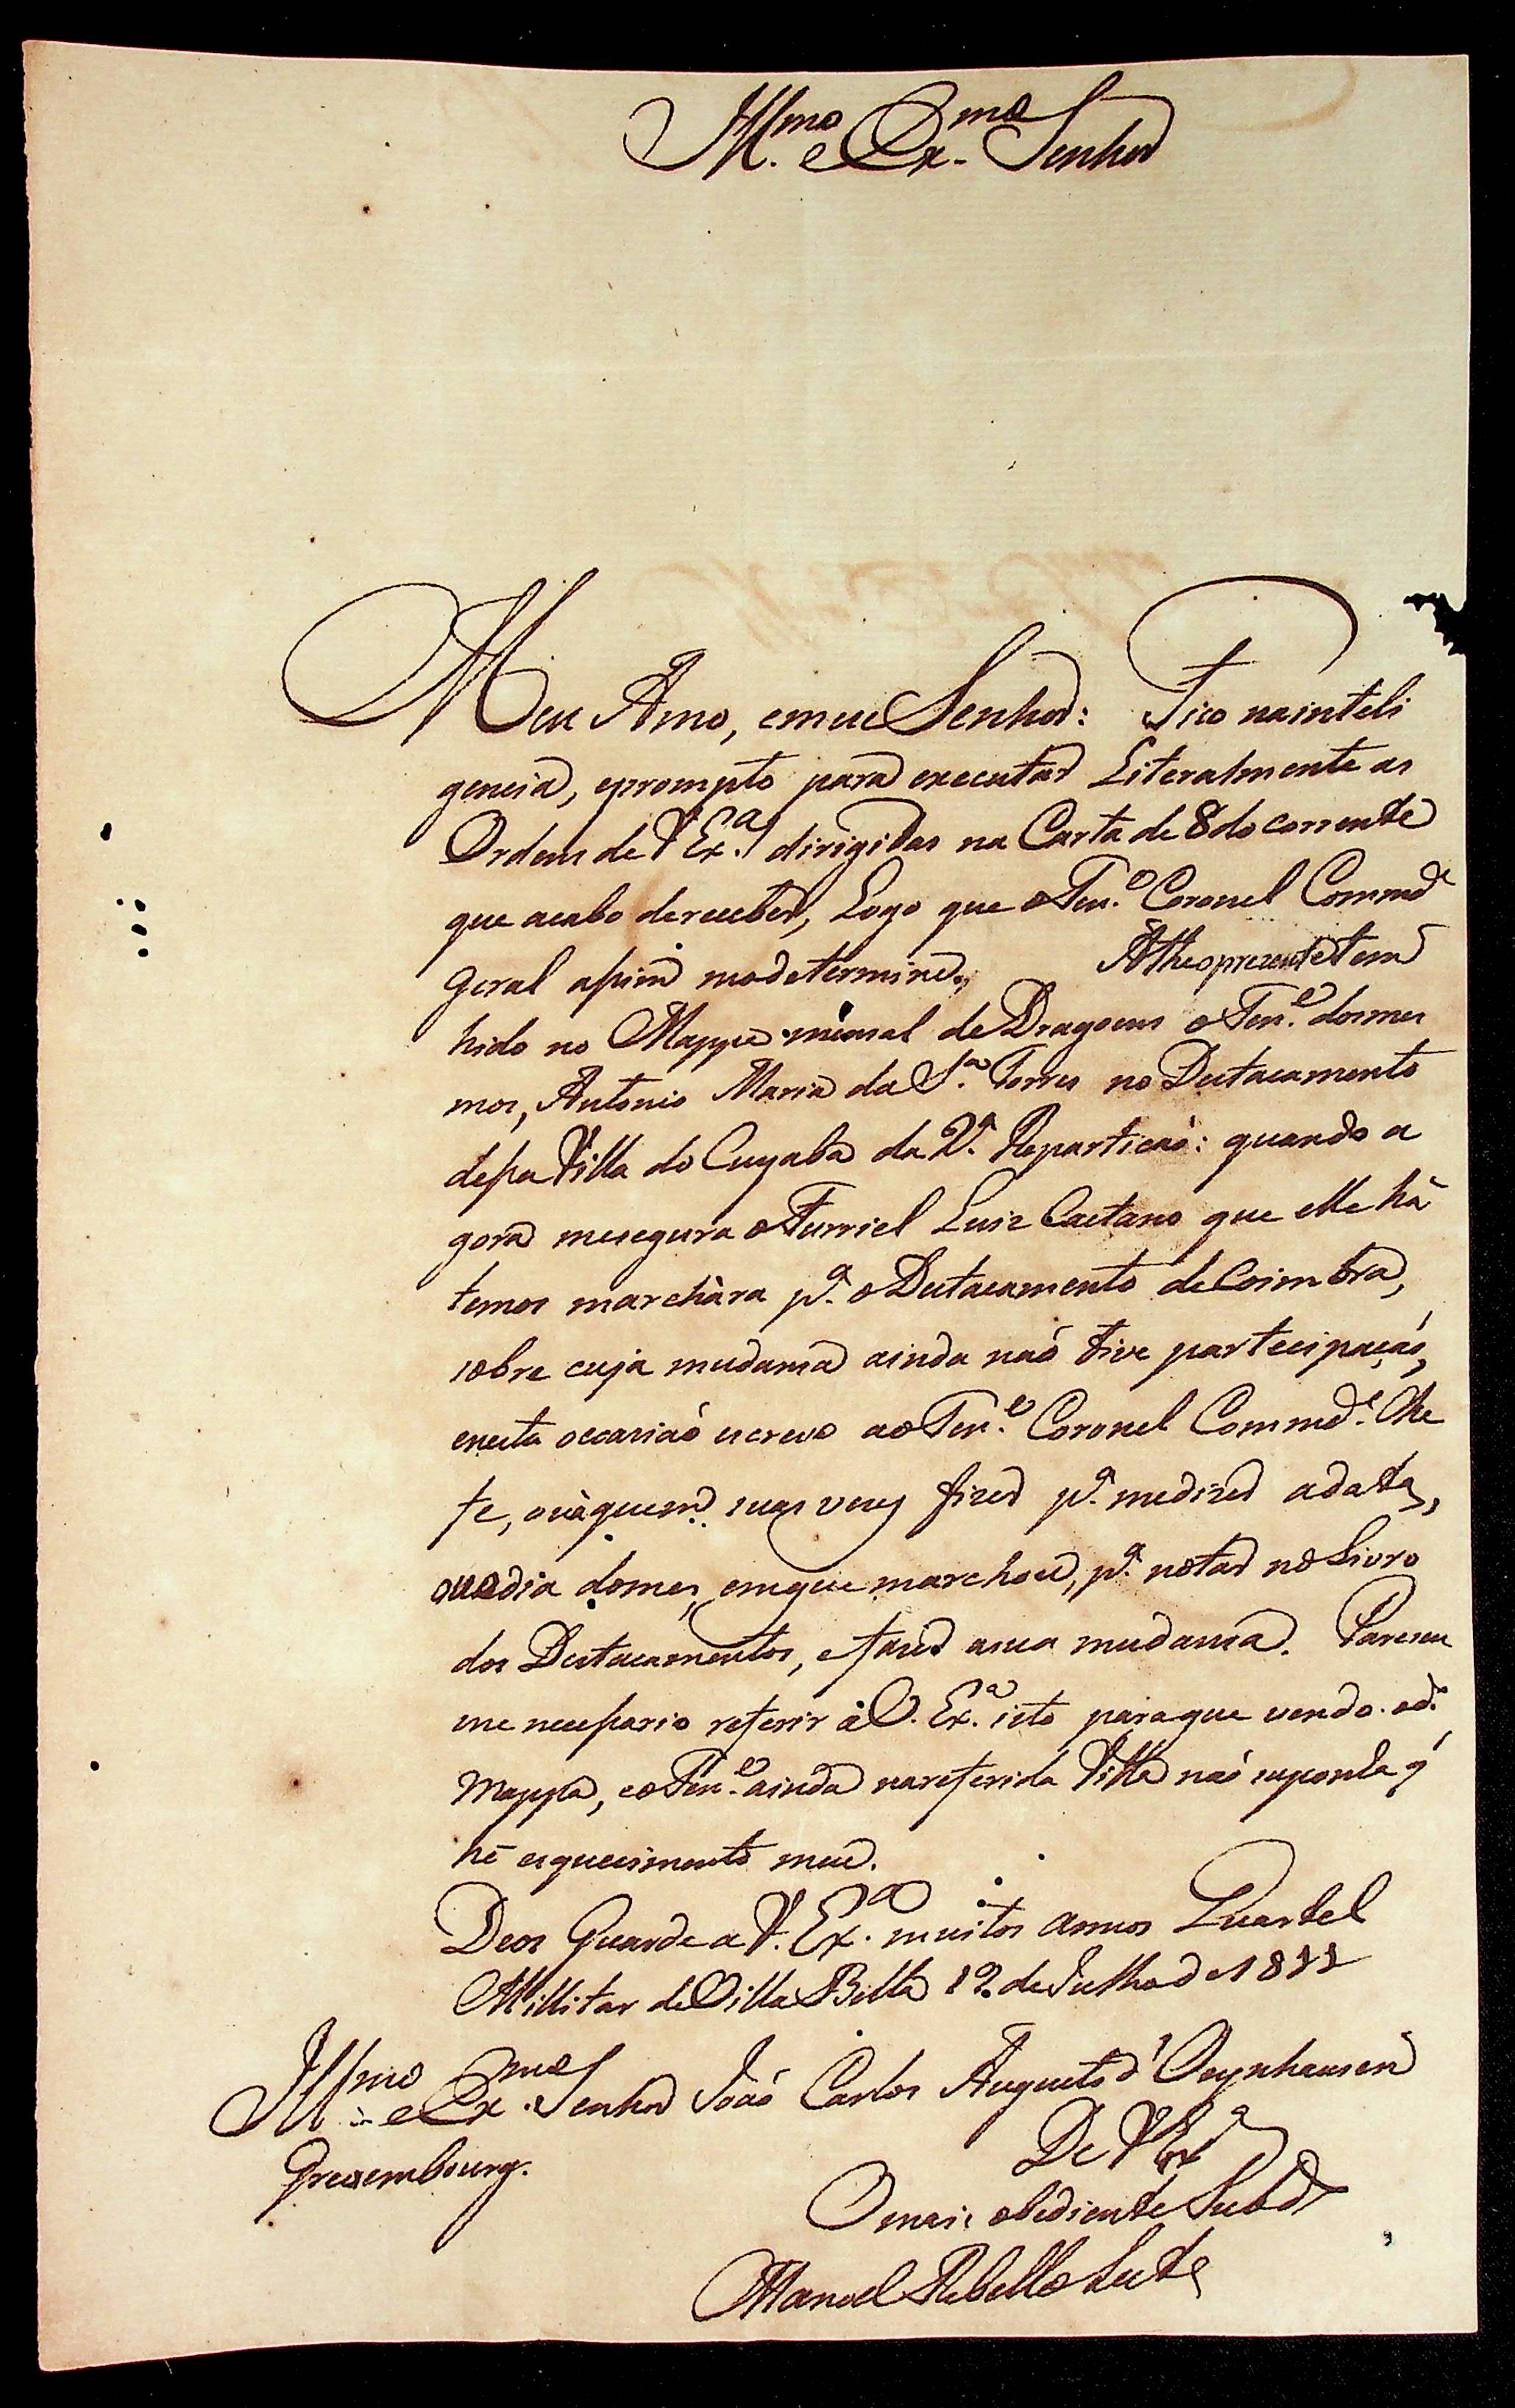 Ill.mo e Ex.mo Senhor
Meu Amo, emeu Senhor: Fico nainteli
gencia, eprompto para executar Literalmente as
Ordens de V Ex.a dirigidas na Carta de 8 do corrente
que acabo dereceber, Logo que oTen.e Coronel Commd.e
Geral assim modetermine. Atheoprezente tem
hido no Mappa mensal de Dragoens oTen.e dosmes
mos, Antonio Maria da S.a Torres no Destacamento
dessa Villa do Cuyabá da 2.a Repartição: quando a
gora mesegura oFurriel Luiz Caetano que elle há
temos marchàra p.a oDestacamento deCoimbra,
sobre cuja mudansa ainda naõ tive partecipaçaõ,
enesta occasiaõ escrevo aoTen.e Coronel Commd.e Lei
te, ouàquem suas vezes fizer p.a medizer adata,
ouodia domes, emque marchou, p.a notar noLivro
dos Destacamentos, efazer asua mudansa. Pareceu
me necessario referir àV. Ex.a isto paraque vendo od.o
Mappa, eoTen.e ainda nareferida Villa naõ suponha q̃
hé esquecimento meu.
Deos Guarde a V. Ex.a muitos annos Quartel
Millitar deVilla Bella 12 deJulho de 1811
Ill.mo e Ex.mo Senhor Joaõ Carlos Augusto d'Oeynhausen
Grevembourg.
De V Ex.a
Omais obediente Subd.o
Manoel Rebello Leite